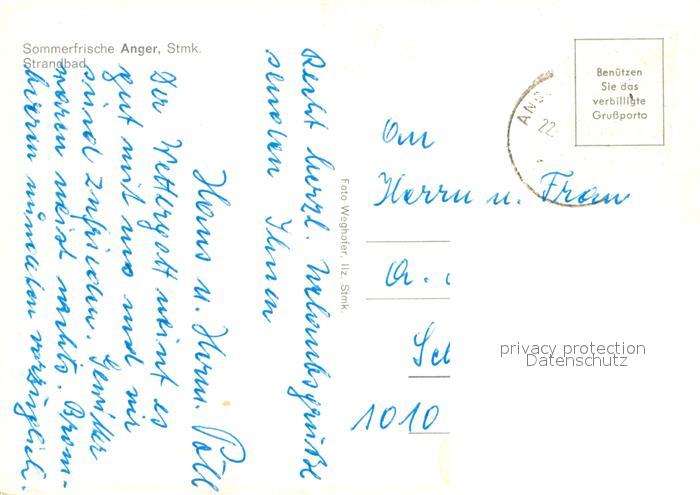 Sommerfrische Anger, Stmk.
Strandbad
Recht herzl. Urlaubsgrüße
senden Ihnen
Hans u. Herm. Pöll
Der Wettergott meint es
gut mit uns und wir
sind zufrieden. Gewitter
waren meist nachts. Brom-
beeren munden vorzüglich.
Foto Weghofer, Ilz, Stmk.
Benützen
Sie das
verbilligte
Grußporto
ANG
22.
An
Herrn u. Frau
A.
Sch
1010
privacy protection
Datenschutz